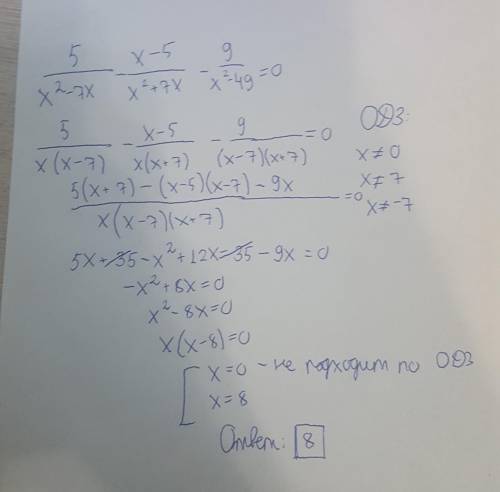 5/(x²-7x) - (x-5)/(x²+7x) - 9/(x²-49) = 0
5/(x(x-7)) - (x-5)/(x(x+7)) - 9/((x-7)(x+7)) = 0
ОДЗ:
x≠0
x≠7
x≠-7
(5(x+7) - (x-5)(x-7) - 9x)/(x(x-7)(x+7)) = 0
5x+35-x²+12x-35-9x=0
-x²+8x=0
x²-8x=0
x(x-8)=0
[ x=0 - не подходит по ОДЗ
x=8
Ответ: 8